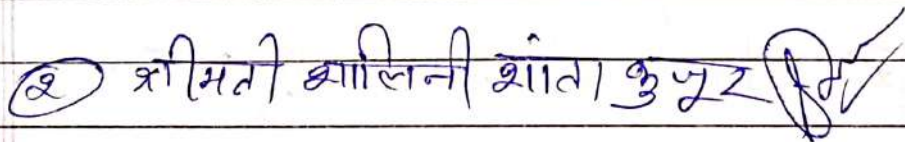 ② श्रीमती शालिनी शांता कुजूर